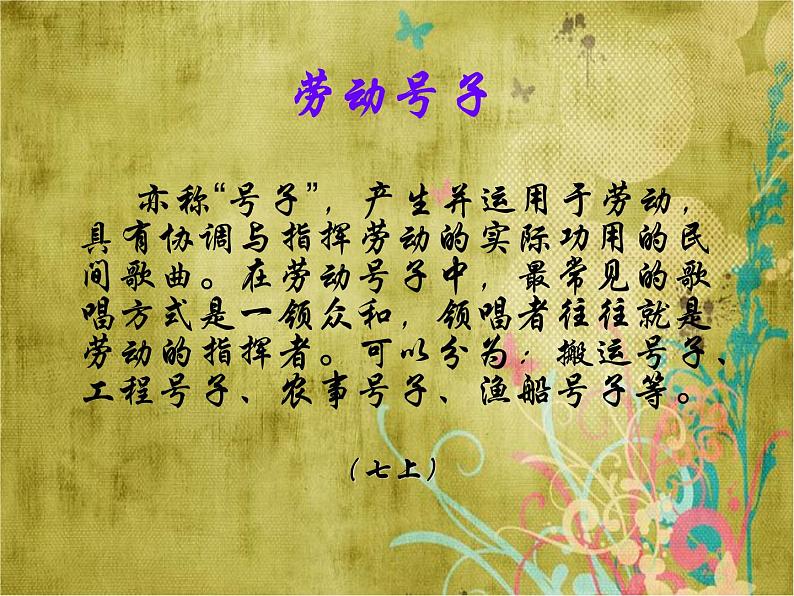 劳动号子
亦称“号子”，产生并运用于劳动，
具有协调与指挥劳动的实际功用的民
间歌曲。在劳动号子中，最常见的歌
唱方式是一领众和，领唱者往往就是
劳动的指挥者。可以分为：搬运号子、
工程号子、农事号子、渔船号子等。
（七上）